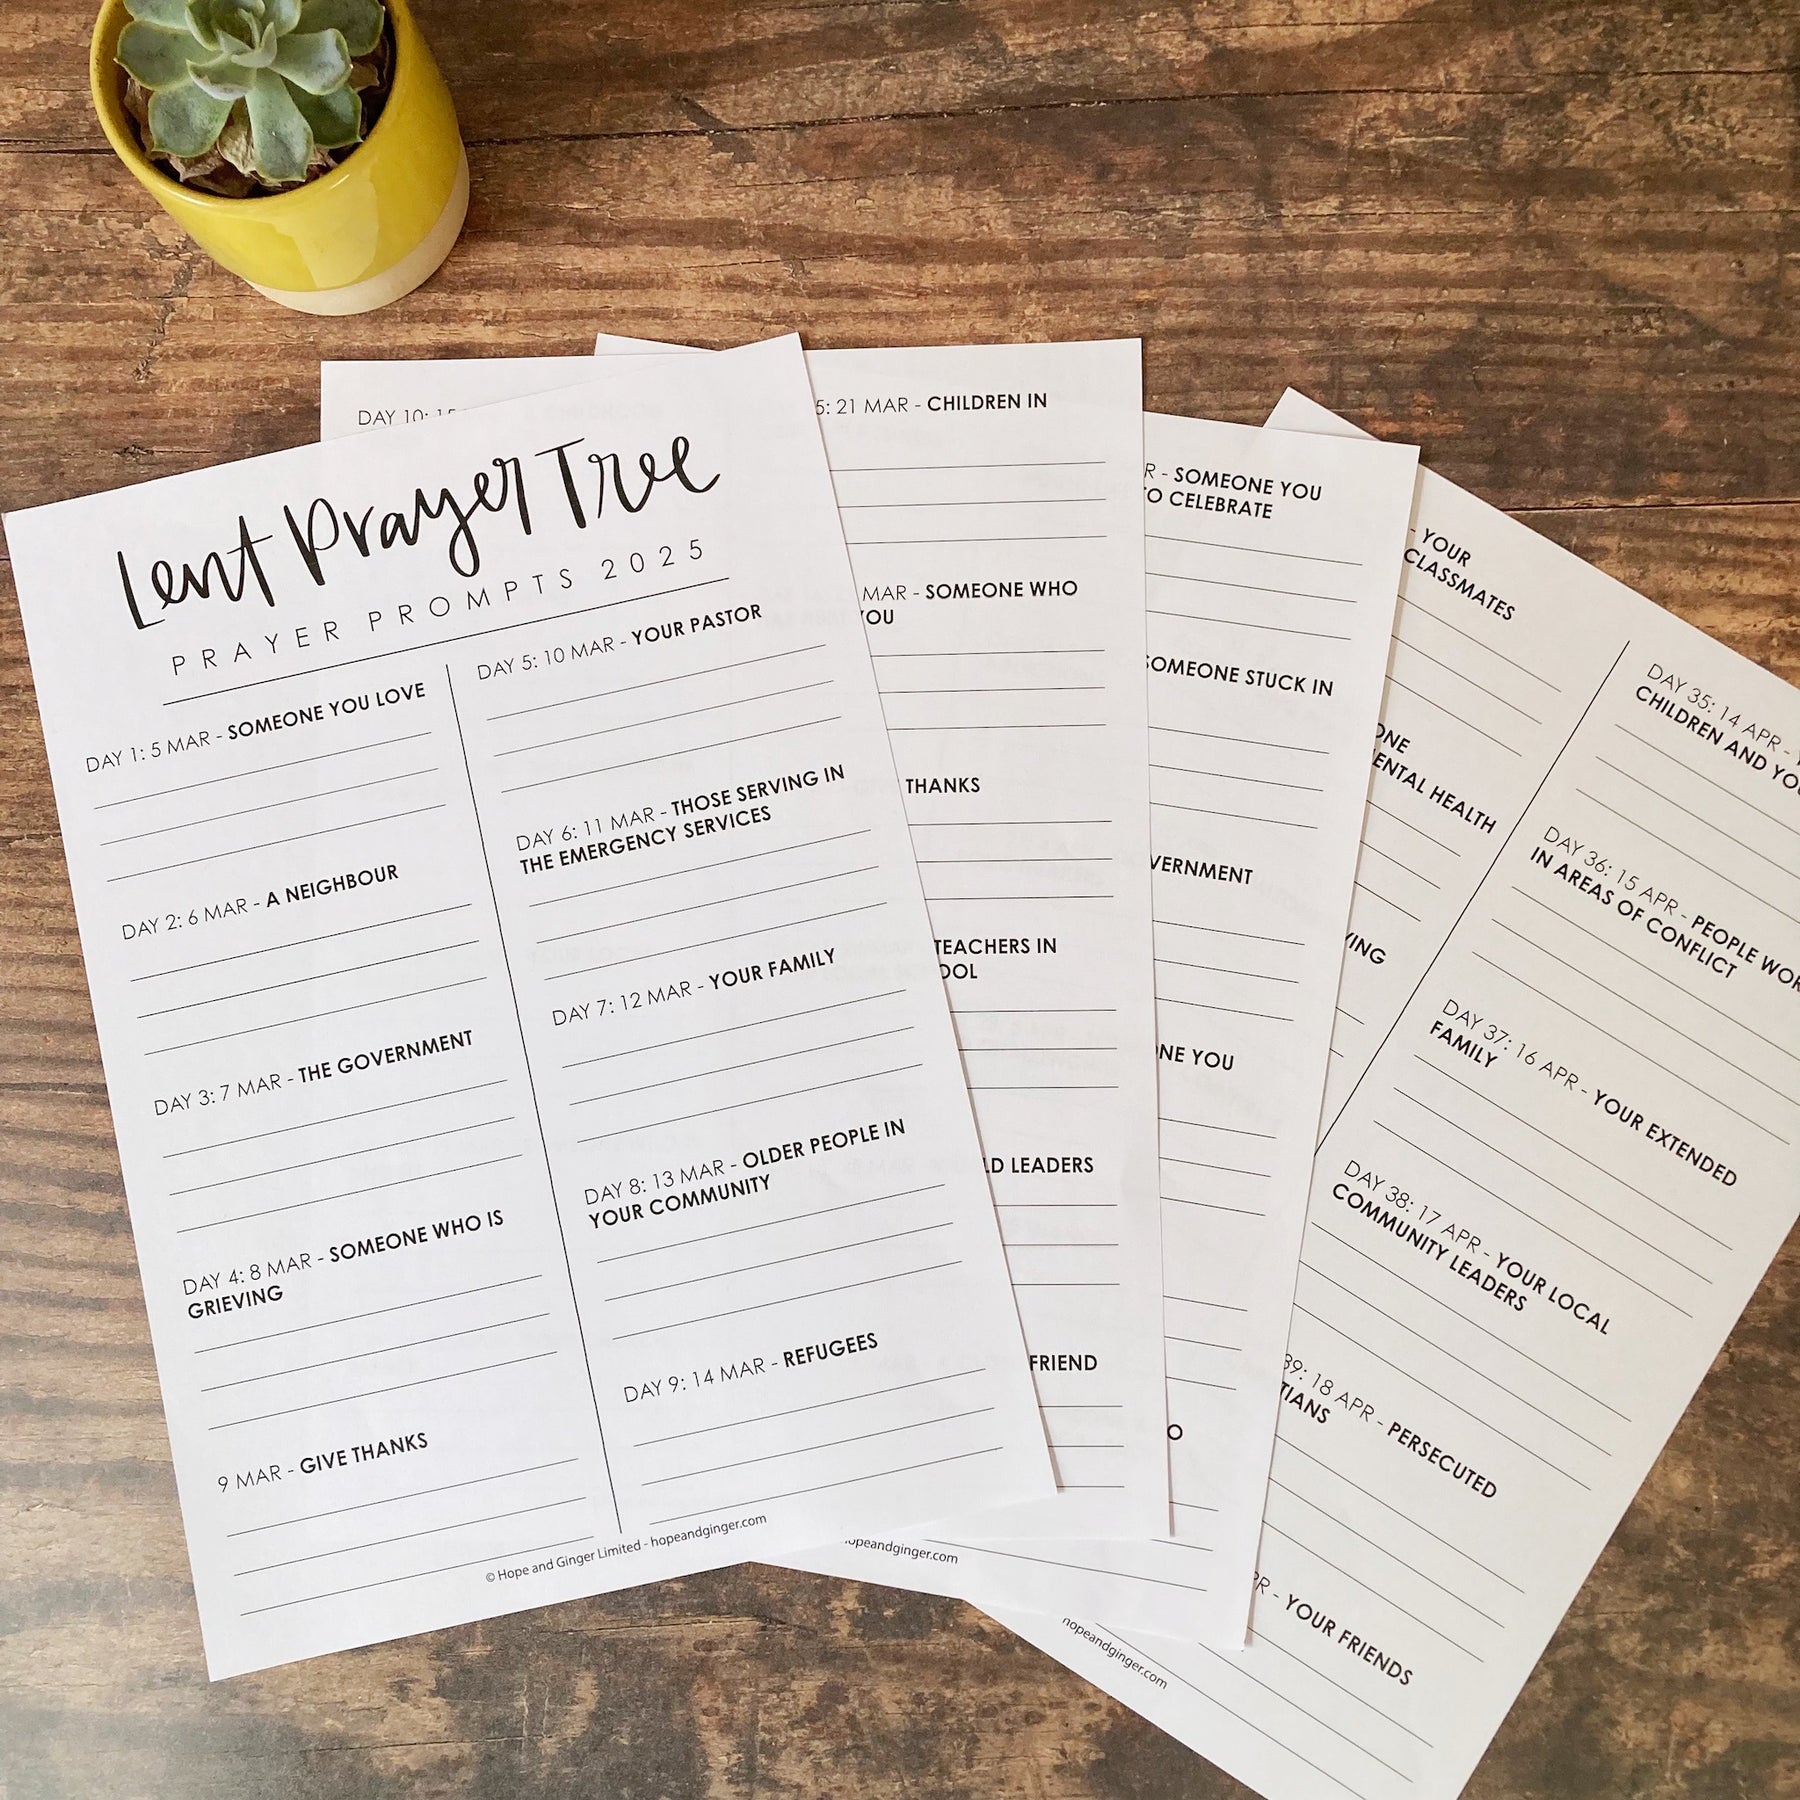 Lent Prayer Tree
PRAYER PROMPTS 2025
DAY 1: 5 MAR - SOMEONE YOU LOVE
DAY 2: 6 MAR - A NEIGHBOUR
DAY 3: 7 MAR - THE GOVERNMENT
DAY 4: 8 MAR - SOMEONE WHO IS
GRIEVING
9 MAR - GIVE THANKS
DAY 5: 10 MAR - YOUR PASTOR
DAY 6: 11 MAR - THOSE SERVING IN
THE EMERGENCY SERVICES
DAY 7: 12 MAR - YOUR FAMILY
DAY 8: 13 MAR - OLDER PEOPLE IN
YOUR COMMUNITY
DAY 9: 14 MAR - REFUGEES
© Hope and Ginger Limited - hopeandginger.com
DAY 10:
5: 21 MAR - CHILDREN IN
MAR - SOMEONE WHO
YOU
THANKS
TEACHERS IN
OOL
LD LEADERS
FRIEND
hopeandginger.com
R - SOMEONE YOU
TO CELEBRATE
SOMEONE STUCK IN
VERNMENT
ONE YOU
O
hopeandginger.com
- YOUR
CLASSMATES
ONE
MENTAL HEALTH
YING
DAY 35: 14 APR -
CHILDREN AND YOU
DAY 36: 15 APR - PEOPLE WOR
IN AREAS OF CONFLICT
DAY 37: 16 APR - YOUR EXTENDED
FAMILY
DAY 38: 17 APR - YOUR LOCAL
COMMUNITY LEADERS
39: 18 APR - PERSECUTED
TIANS
PR - YOUR FRIENDS